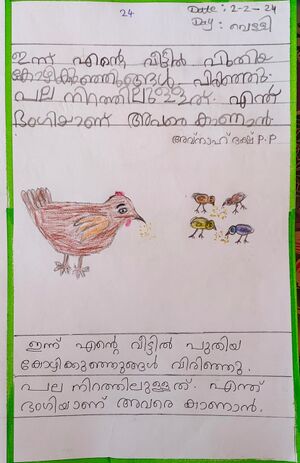 24
Date : 2-2-24
Day : വെള്ളി
ഇന്ന് എൻ്റെ വീട്ടിൽ പുതിയ
കോഴിക്കുഞ്ഞുങ്ങൾ വിരിഞ്ഞു.
പല നിറത്തിലുള്ളത്. എന്ത്
ഭംഗിയാണ് അവരെ കാണാൻ.
P.P
ഇന്ന് എൻ്റെ വീട്ടിൽ പുതിയ
കോഴിക്കുഞ്ഞുങ്ങൾ വിരിഞ്ഞു.
പല നിറത്തിലുള്ളത്. എന്ത്
ഭംഗിയാണ് അവരെ കാണാൻ.